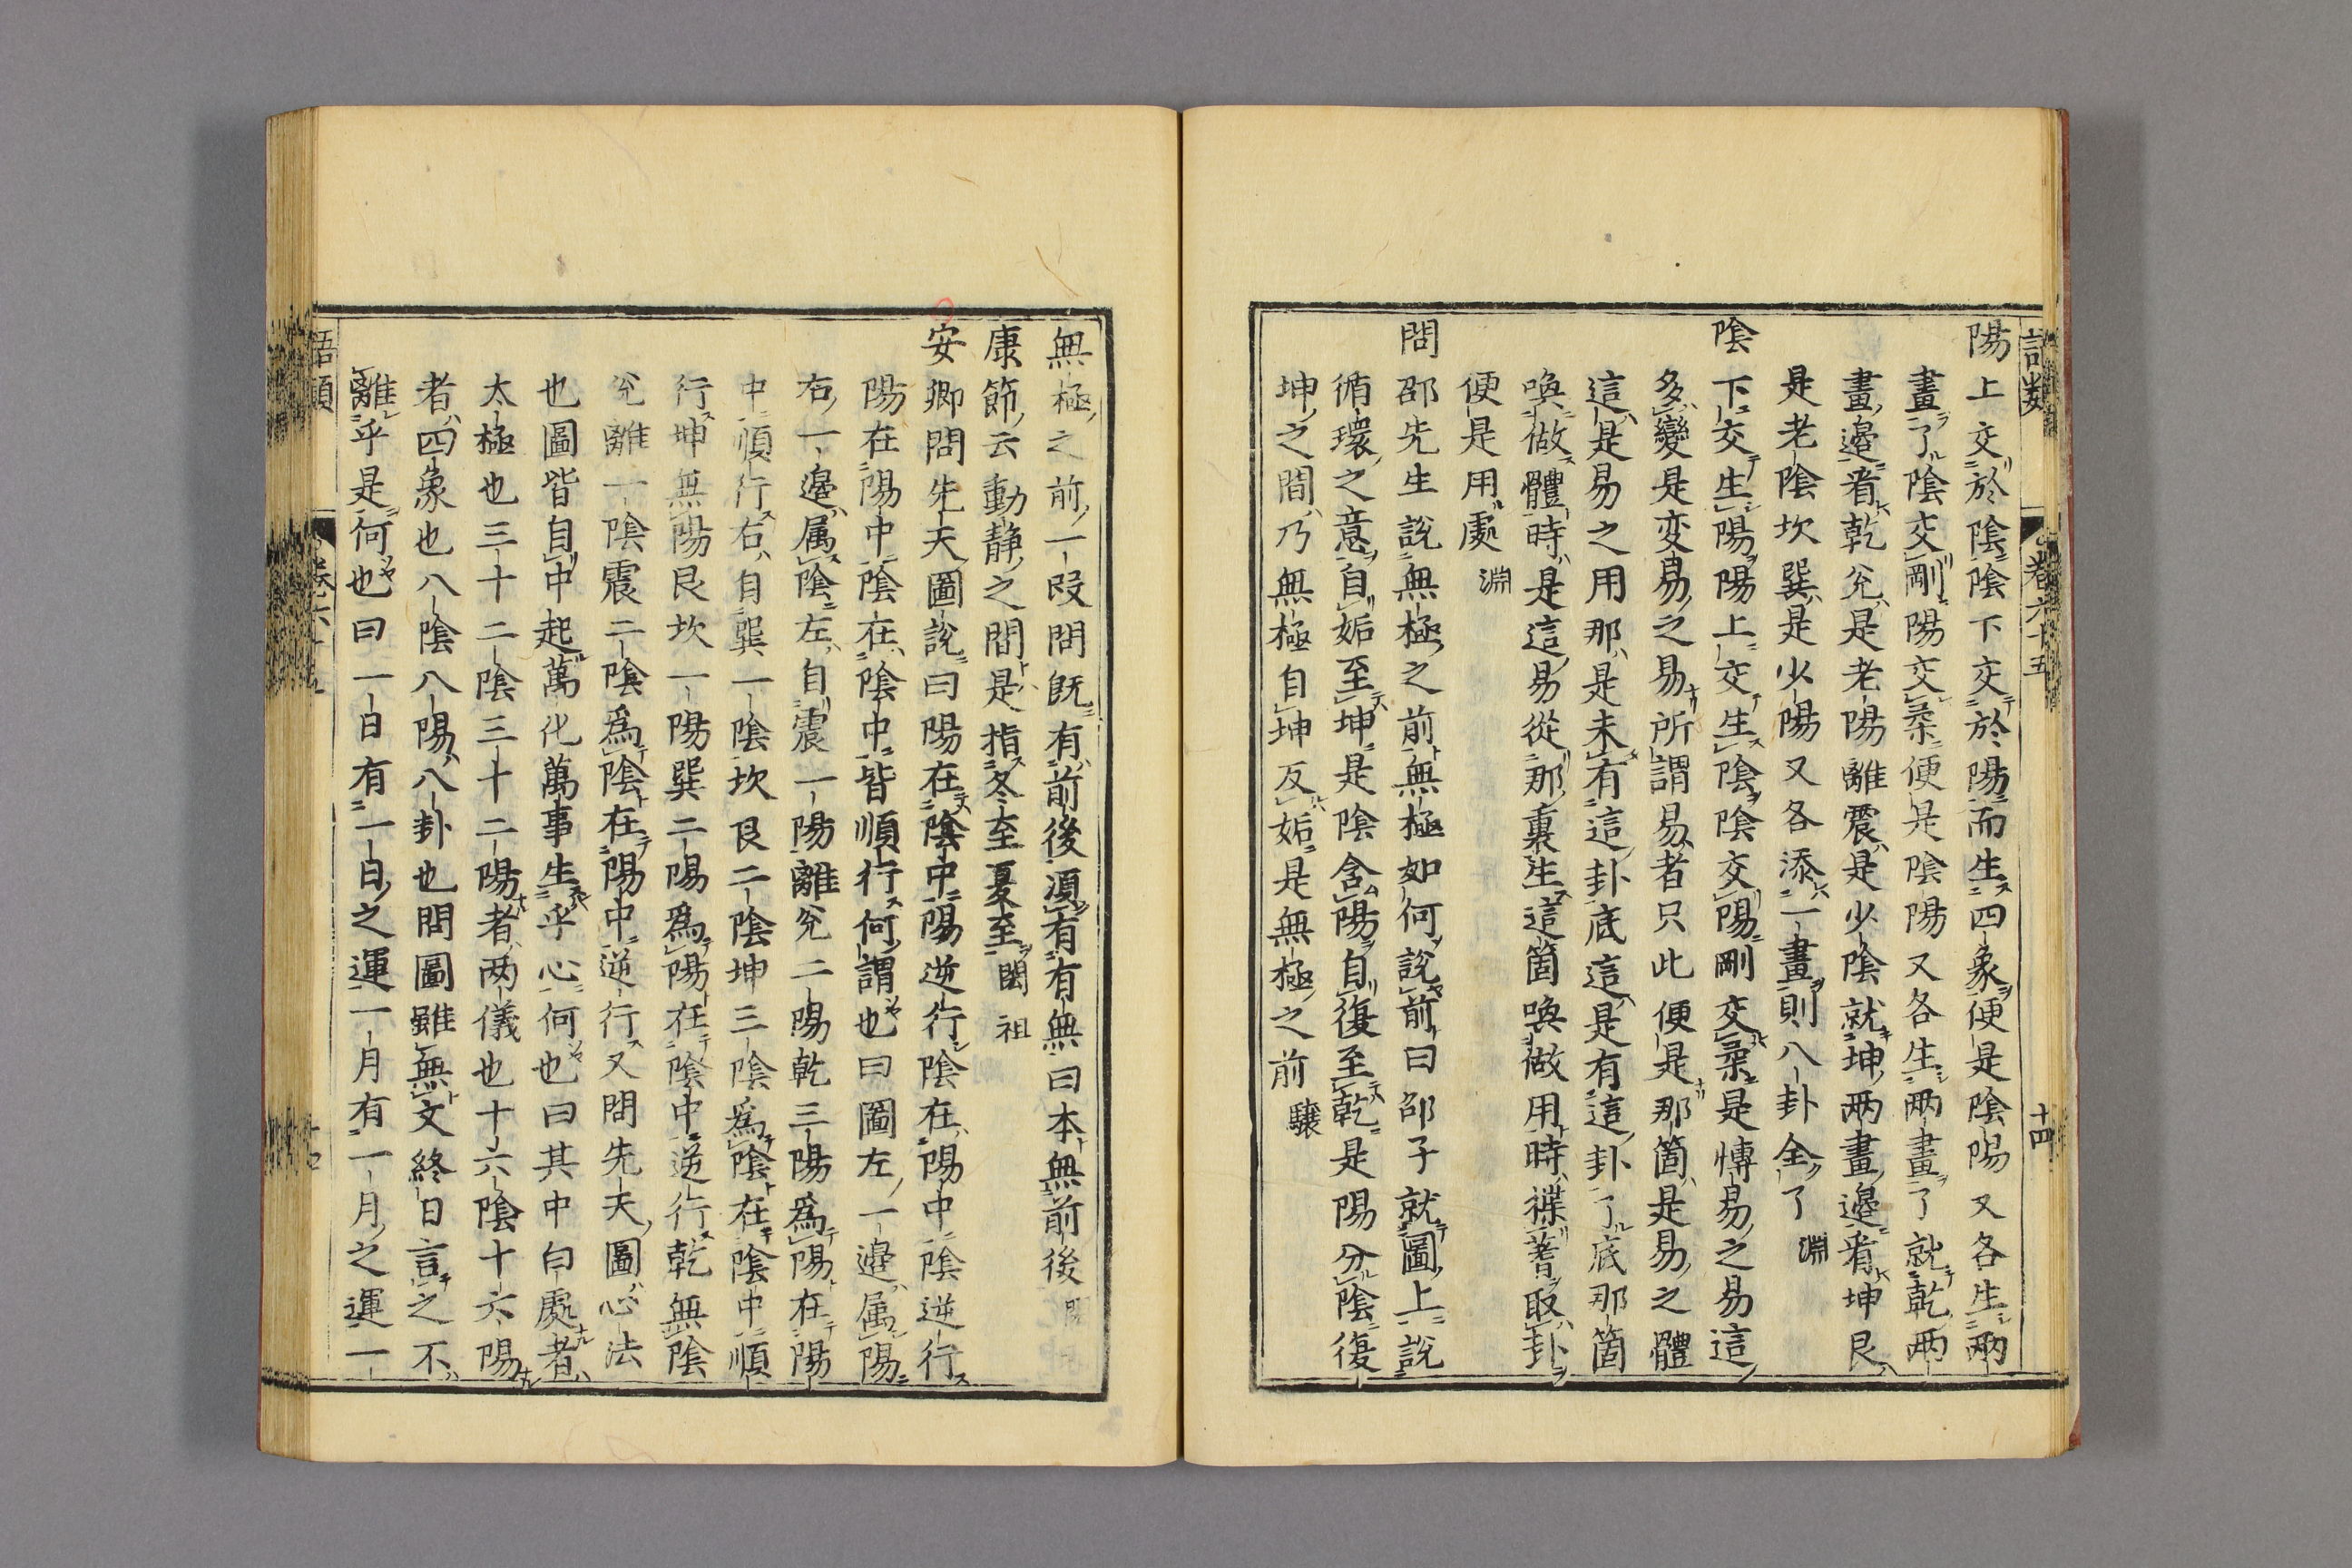 陽上交於陰陰下交於陽而生四象便是陰陽又各生兩
畫了陰交剛陽交柔便是陰陽又各生兩畫了就乾兩
畫邉看乾兊是老陽離震是少陰就坤两畫邉看坤艮
是老陰坎巽是少陽又各添一畫則八卦全了 淵
陰下交生陽陽上交生陰陰交陽剛交柔是慱易之易這
多變是变易之易所謂易者只此便是那箇是易之體
這是易之用那是未有這卦底這是有這卦了底那箇
喚做體時是這易從那裏生這箇喚做用時揲蓍取卦
便是用處 淵
問邵先生說無極之前無極如何說前曰邵子就圖上說
循環之意自姤至坤是陰含陽自復至乾是陽分陰復
坤之間乃無極自坤反姤是無極之前 驤
卷六十五
十四
無極之前一段問既有前後湏有有無曰本無前後
康節云動静之間是指冬至夏至 閎祖
安卿問先天圖說曰陽在陰中陽逆行陰在陽中陰逆行
陽在陽中陰在陰中皆順行何謂也曰圖左一邉属陽
右一邉属陰左自震一陽離兊二陽乾三陽為陽在陽
中順行右自巽一陰坎艮二陰坤三陰為陰在陰中順
行坤無陽艮坎一陽巽二陽為陽在陰中逆行乾無陰
兊離一陰震二陰爲陰在陽中逆行又問先天圖心法
也圖皆自中起萬化萬事生乎心何也曰其中白處者
太極也三十二陰三十二陽者两儀也十六陰十六陽
者四象也八陰八陽八卦也問圖雖無文終日言之不
離乎是何也曰一日有一日之運一月有一月之運一
語類